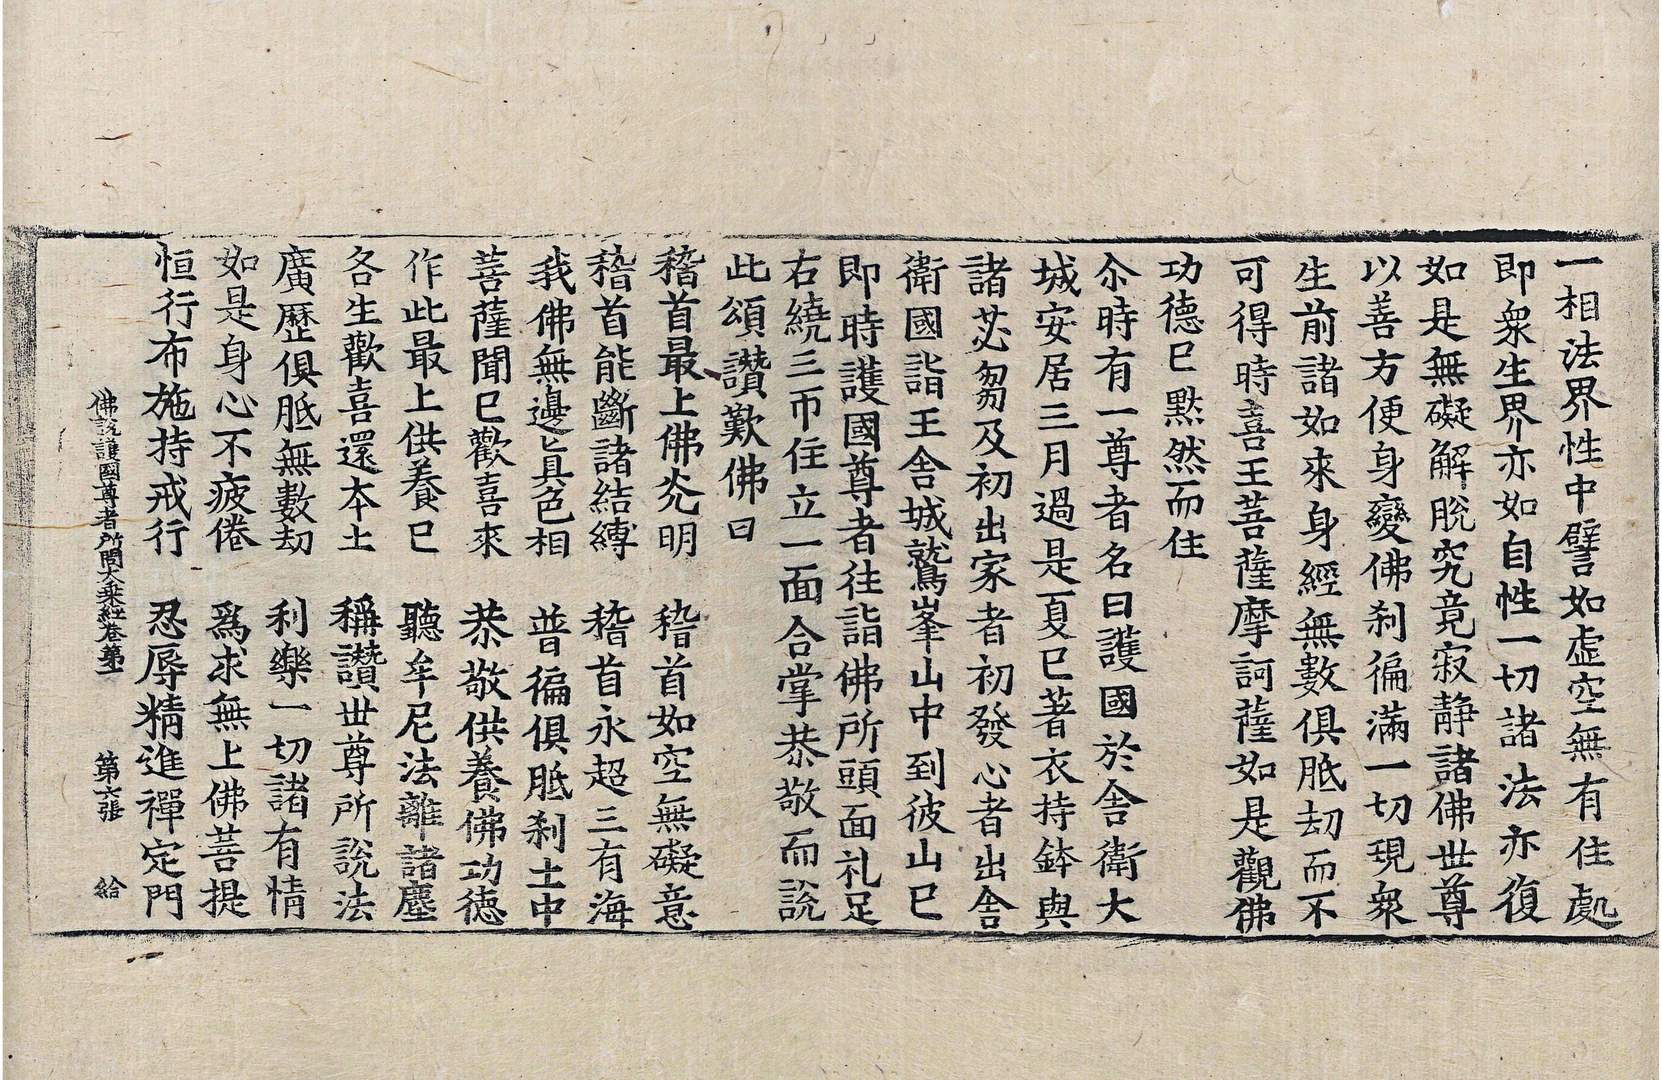 一相法界性中譬如虛空無有住處
即衆生界亦如自性一切諸法亦復
如是無礙解脫究竟寂靜諸佛世尊
以善方便身變佛刹徧滿一切現衆
生前諸如來身經無數俱胝劫而不
可得時喜王菩薩摩訶薩如是觀佛
功德已默然而住
尒時有一尊者名曰護國於舍衛大
城安居三月過是夏已著衣持鉢與
諸苾芻及初出家者初發心者出舍
衛國詣王舍城鷲峯山中到彼山已
即時護國尊者往詣佛所頭面礼足
右繞三帀住立一面合掌恭敬而說
此頌讚歎佛曰
稽首最上佛光明　稽首如空無礙意
稽首能斷諸結縛　稽首永超三有海
我佛無邊具色相　普徧俱胝刹土中
菩薩聞已歡喜來　恭敬供養佛功德
作此最上供養已　聽牟尼法離諸塵
各生歡喜還本土　稱讚世尊所說法
廣歷俱胝無數劫　利樂一切諸有情
如是身心不疲倦　爲求無上佛菩提
恒行布施持戒行　忍辱精進禪定門
佛說護國尊者所問大乘經卷第一　第六張　給